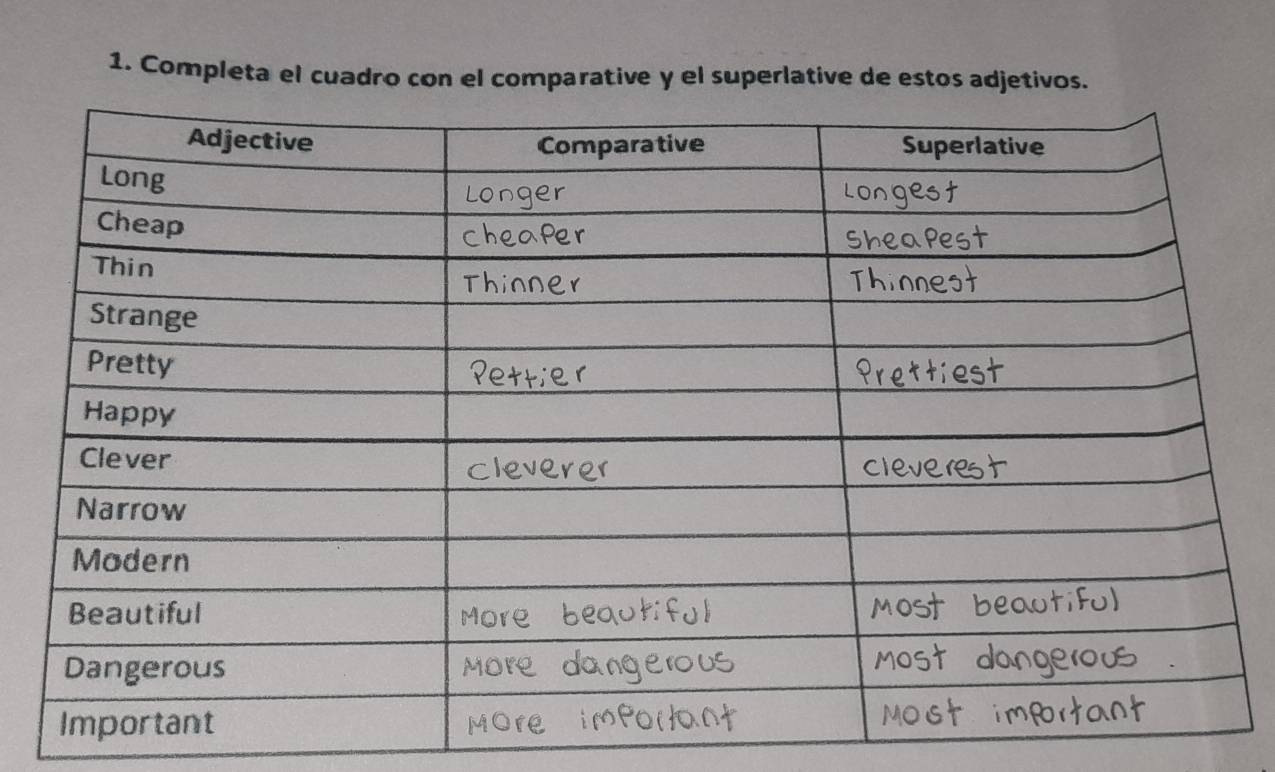 1. Completa el cuadro con el comparative y el superlative de estos adjetivos.
Adjective Comparative Superlative
Long Longer Longest
Cheap cheaper sheapest
Thin Thinner Thinnest
Strange
Pretty Pettier Prettiest
Happy
Clever cleverer cleverest
Narrow
Modern
Beautiful More beautiful Most beautiful
Dangerous More dangerous Most dangerous.
Important More important Most important